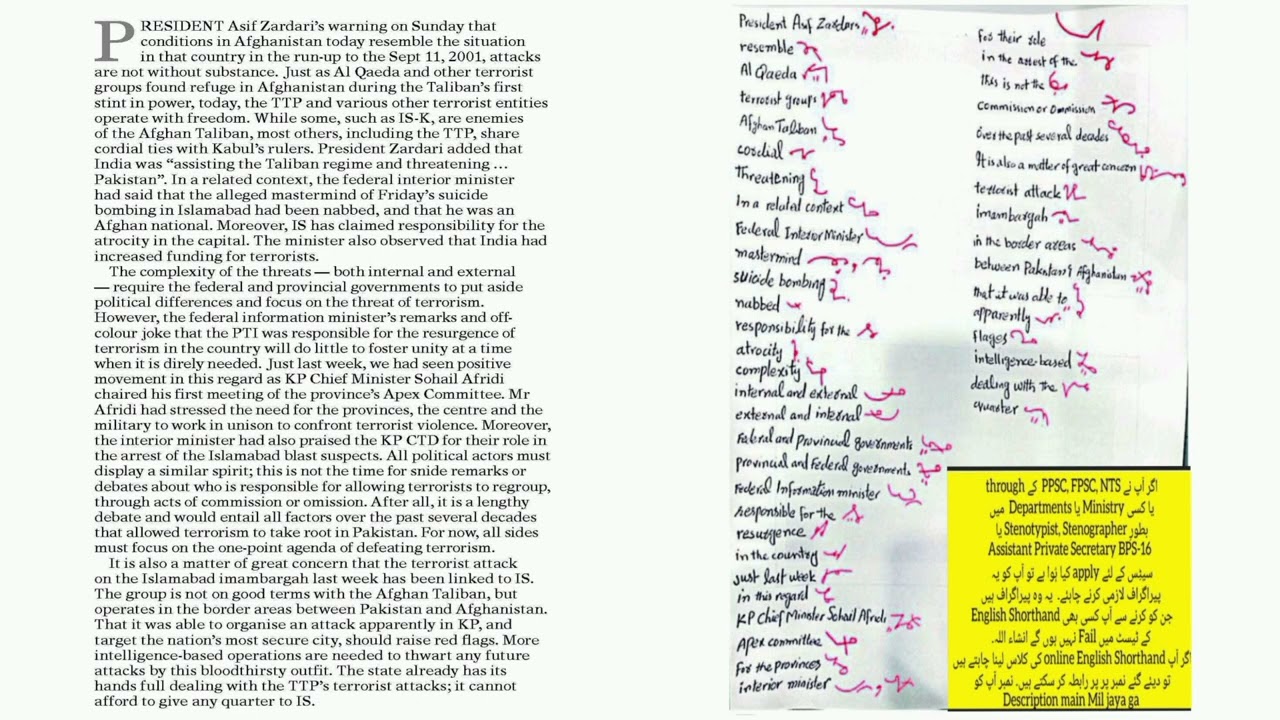 PRESIDENT Asif Zardari’s warning on Sunday that
conditions in Afghanistan today resemble the situation
in that country in the run-up to the Sept 11, 2001, attacks
are not without substance. Just as Al Qaeda and other terrorist
groups found refuge in Afghanistan during the Taliban’s first
stint in power, today, the TTP and various other terrorist entities
operate with freedom. While some, such as IS-K, are enemies
of the Afghan Taliban, most others, including the TTP, share
cordial ties with Kabul’s rulers. President Zardari added that
India was “assisting the Taliban regime and threatening …
Pakistan”. In a related context, the federal interior minister
had said that the alleged mastermind of Friday’s suicide
bombing in Islamabad had been nabbed, and that he was an
Afghan national. Moreover, IS has claimed responsibility for the
atrocity in the capital. The minister also observed that India had
increased funding for terrorists.
The complexity of the threats — both internal and external
— require the federal and provincial governments to put aside
political differences and focus on the threat of terrorism.
However, the federal information minister’s remarks and off-
colour joke that the PTI was responsible for the resurgence of
terrorism in the country will do little to foster unity at a time
when it is direly needed. Just last week, we had seen positive
movement in this regard as KP Chief Minister Sohail Afridi
chaired his first meeting of the province’s Apex Committee. Mr
Afridi had stressed the need for the provinces, the centre and the
military to work in unison to confront terrorist violence. Moreover,
the interior minister had also praised the KP CTD for their role in
the arrest of the Islamabad blast suspects. All political actors must
display a similar spirit; this is not the time for snide remarks or
debates about who is responsible for allowing terrorists to regroup,
through acts of commission or omission. After all, it is a lengthy
debate and would entail all factors over the past several decades
that allowed terrorism to take root in Pakistan. For now, all sides
must focus on the one-point agenda of defeating terrorism.
It is also a matter of great concern that the terrorist attack
on the Islamabad imambargah last week has been linked to IS.
The group is not on good terms with the Afghan Taliban, but
operates in the border areas between Pakistan and Afghanistan.
That it was able to organise an attack apparently in KP, and
target the nation’s most secure city, should raise red flags. More
intelligence-based operations are needed to thwart any future
attacks by this bloodthirsty outfit. The state already has its
hands full dealing with the TTP’s terrorist attacks; it cannot
afford to give any quarter to IS.
President Asif Zardars
resemble
Al Qaeda
terrorist groups
Afghan Taliban
cordial
Threatening
In a related context
Federal Interior Minister
mastermind
suicide bombing
nabbed
responsibility for the
atrocity
complexity
internal and external
external and internal
Federal and Provincial governments
provincial and Federal governments
Federal Information minister
responsible for the
resurgence
in the country
just last week
in this regard
KP Chief Minister Sohail Afridi
Apex committee
for the provinces
interior minister
for their role
in the arrest of the
this is not the
Commission or Ommission
over the past several decades
It is also a matter of great concern
terrorist attack
imambargah
in the border areas
between Pakistan & Afghanistan
that it was able to
apparently
flages
intelligence-based
dealing with the
quarter
اگر آپ نے PPSC, FPSC, NTS کے through
یا کسی Ministry یا Departments میں
بطور Stenotypist, Stenographer یا
Assistant Private Secretary BPS-16
سیٹس کے لئے apply کیا ہوا ہے تو آپ کو یہ
پیراگراف لازمی کرنے چاہئے۔ یہ وہ پیراگراف ہیں
جن کو کرنے سے آپ کسی بھی English Shorthand
کے ٹیسٹ میں Fail نہیں ہوں گے انشاء اللہ۔
اگر آپ online English Shorthand کی کلاس لینا چاہتے ہیں
تو دیئے گئے نمبر پر پر رابطہ کر سکتے ہیں۔ نمبر آپ کو
Description main Mil jaya ga